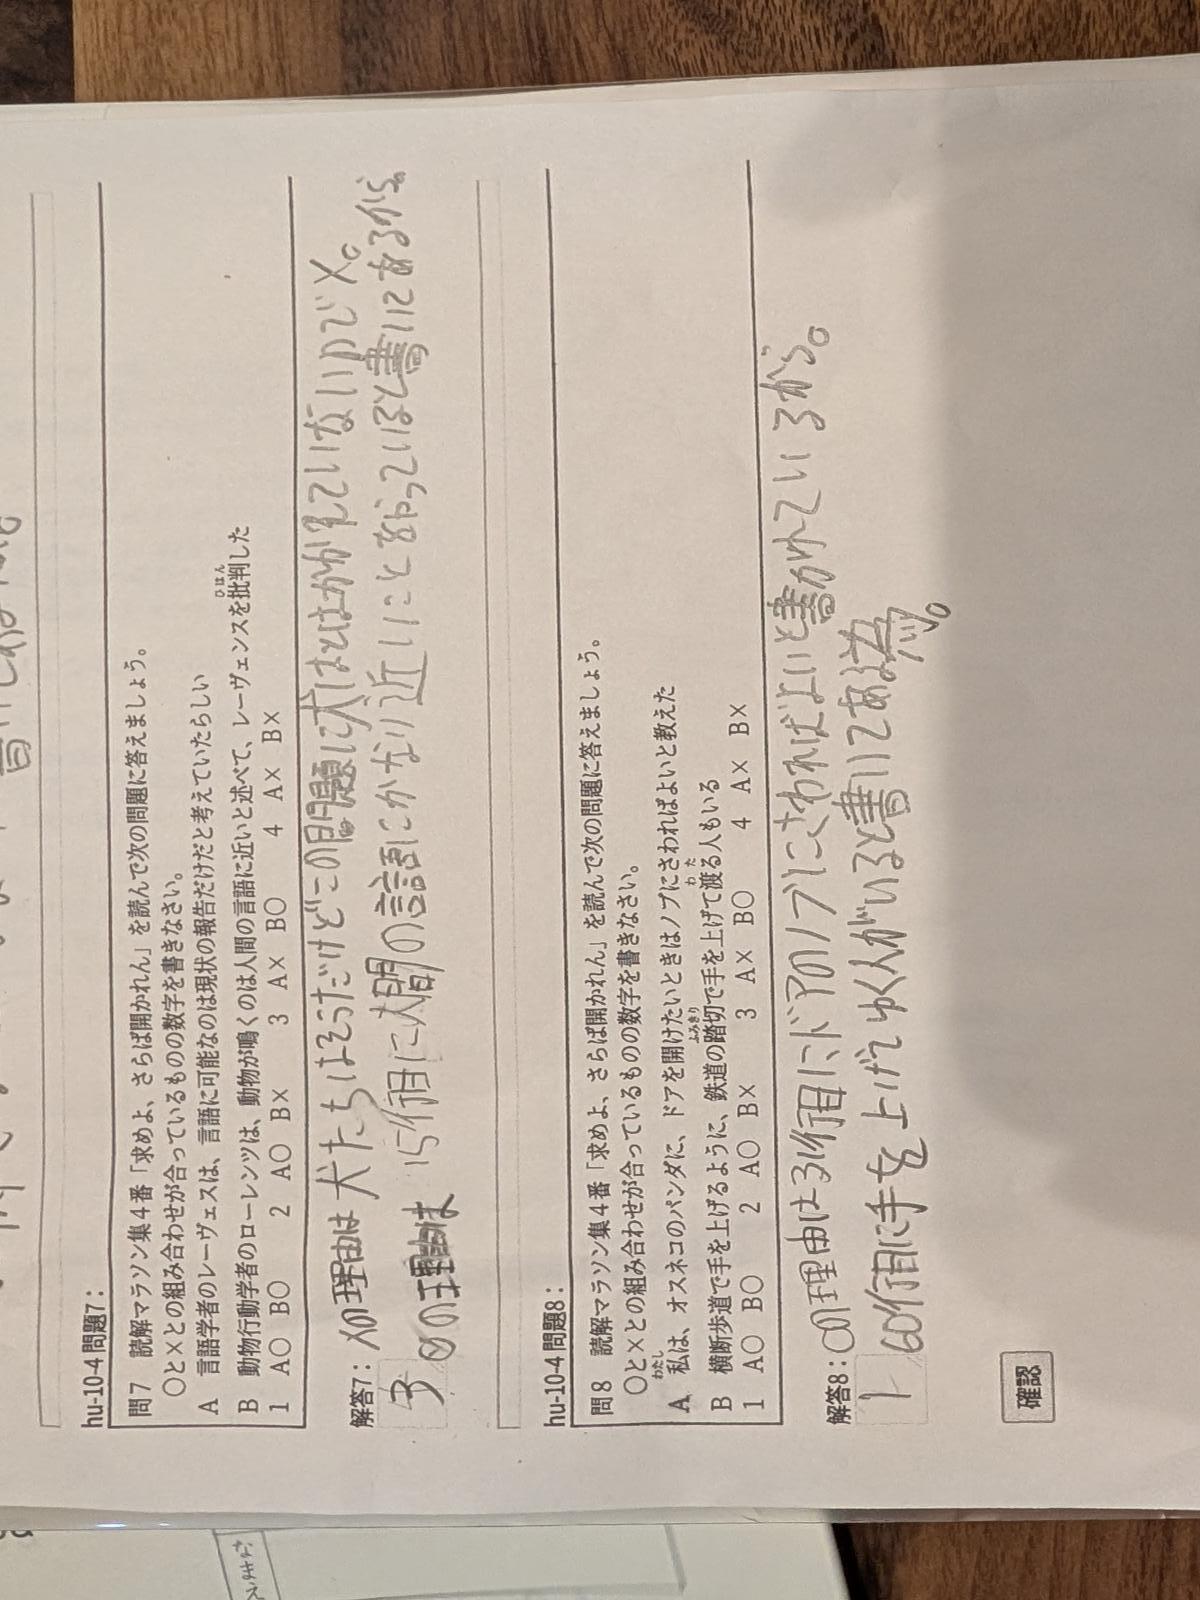 hu-10-4問題7：
問7　読解マラソン集4番「求めよ、さらば開かれん」を読んで次の問題に答えましょう。
○と×との組み合わせが合っているものの数字を書きなさい。
A　言語学者のレーヴェスは、言語に可能なのは現状の報告だけだと考えていたらしい
ひはん
B　動物行動学者のローレンツは、動物が鳴くのは人間の言語に近いと述べて、レーヴェンスを批判した
1　A○　B○　2　A○　B×　3　A×　B○　4　A×　B×
解答7：
3
×の理由は犬たちはそうだけどこの問題に犬はとは
ていないので×。
○の理由は　15行目に人間の言語にかなり近いことをやっていると書いてあるから。
hu-10-4問題8：
問8　読解マラソン集4番「求めよ、さらば開かれん」を読んで次の問題に答えましょう。
○と×との組み合わせが合っているものの数字を書きなさい。
わたし
A　私は、オスネコのパンダに、ドアを開けたいときはノブにさわればよいと教えた
ふみきり　わた
B　横断歩道で手を上げるように、鉄道の踏切で手を上げて渡る人もいる
1　A○　B○　2　A○　B×　3　A×　B○　4　A×　B×
解答8：
1
○の理由は31行目にドアのノブにさわればよいと書かれているから。
60行目に手を上げてゆく人がいると書いてある為。
確認